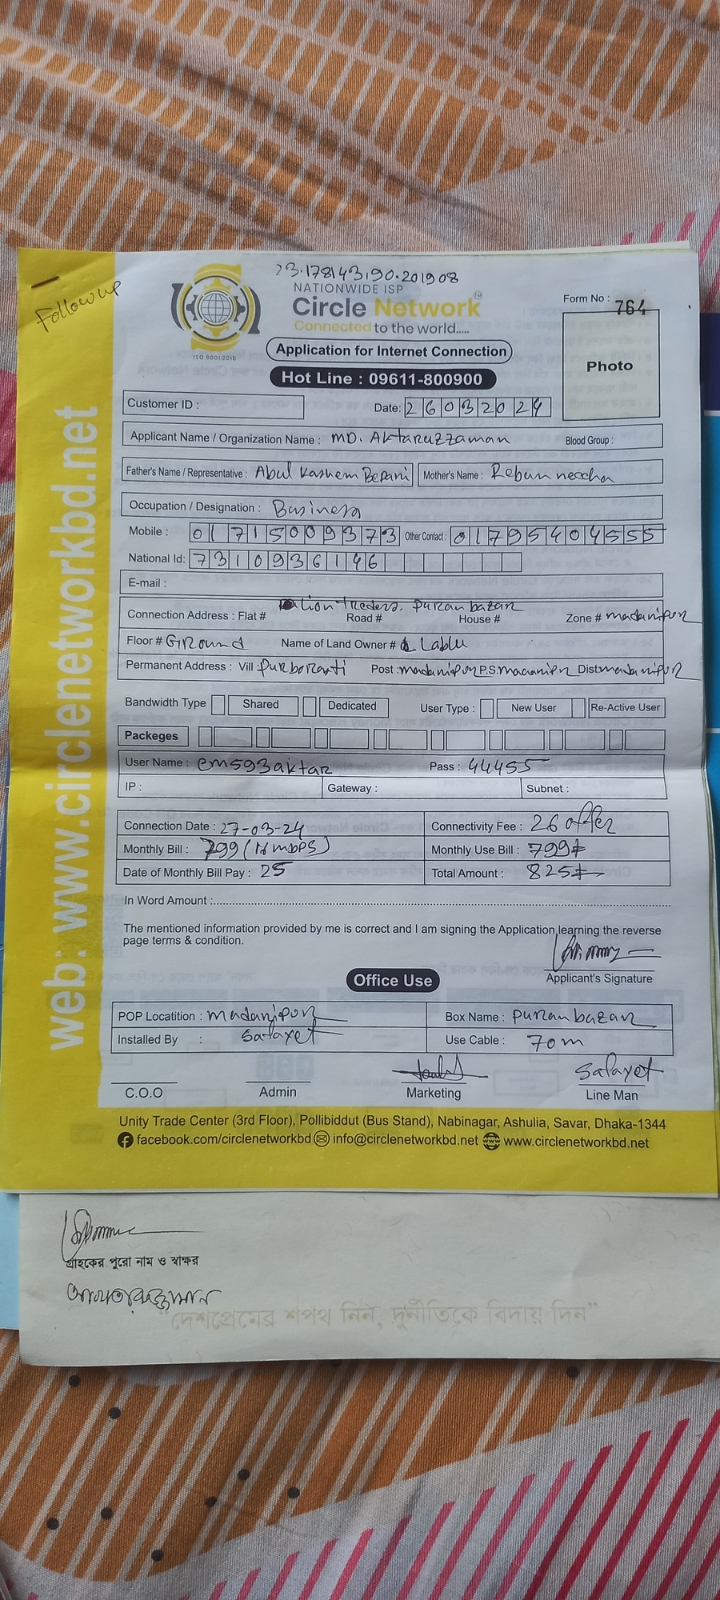 23.178143,90.201908
Followup
NATIONWIDE ISP
Circle Network
Connected to the world.....
ISO 9001:2015
Application for Internet Connection
Hot Line : 09611-800900
Form No : 764
Photo
Customer ID :
Date: 26032024
Applicant Name / Organization Name : MD. Aktaruzzaman Blood Group :
Father's Name / Representative : Abul Kashem Bepari Mother's Name :
Occupation / Designation : Business
Mobile : 01715009373 Other Contact : 01795404555
National Id: 7310936146
E-mail :
Lion Treders. Puran bazar
Connection Address : Flat # Road # House # Zone # madaripur
Floor # GRound Name of Land Owner # Lablu
Permanent Address : Vill Post madaripur P.S. madaripur Dist madaripur
Bandwidth Type Shared Dedicated User Type : New User Re-Active User
Packeges
User Name : em593aktar Pass : 44455
IP : Gateway : Subnet :
Connection Date : 27-03-24 Connectivity Fee : 26 offer
Monthly Bill : 799 Monthly Use Bill : 799
Date of Monthly Bill Pay : 25 Total Amount : 825
In Word Amount :
The mentioned information provided by me is correct and I am signing the Application,learning the reverse
page terms & condition.
Applicant's Signature
Office Use
POP Locatition : madaripur Box Name : puran bazar
Installed By : Safayet Use Cable : 70m
Safayet
C.O.O Admin Marketing Line Man
Unity Trade Center (3rd Floor), Pollibiddut (Bus Stand), Nabinagar, Ashulia, Savar, Dhaka-1344
facebook.com/circlenetworkbd info@circlenetworkbd.net www.circlenetworkbd.net
web: www.circlenetworkbd.net
গ্রাহকের পুরো নাম ও স্বাক্ষর
আখতারুজ্জামান
"দেশপ্রেমের শপথ নিন, দুর্নীতিকে বিদায় দিন"